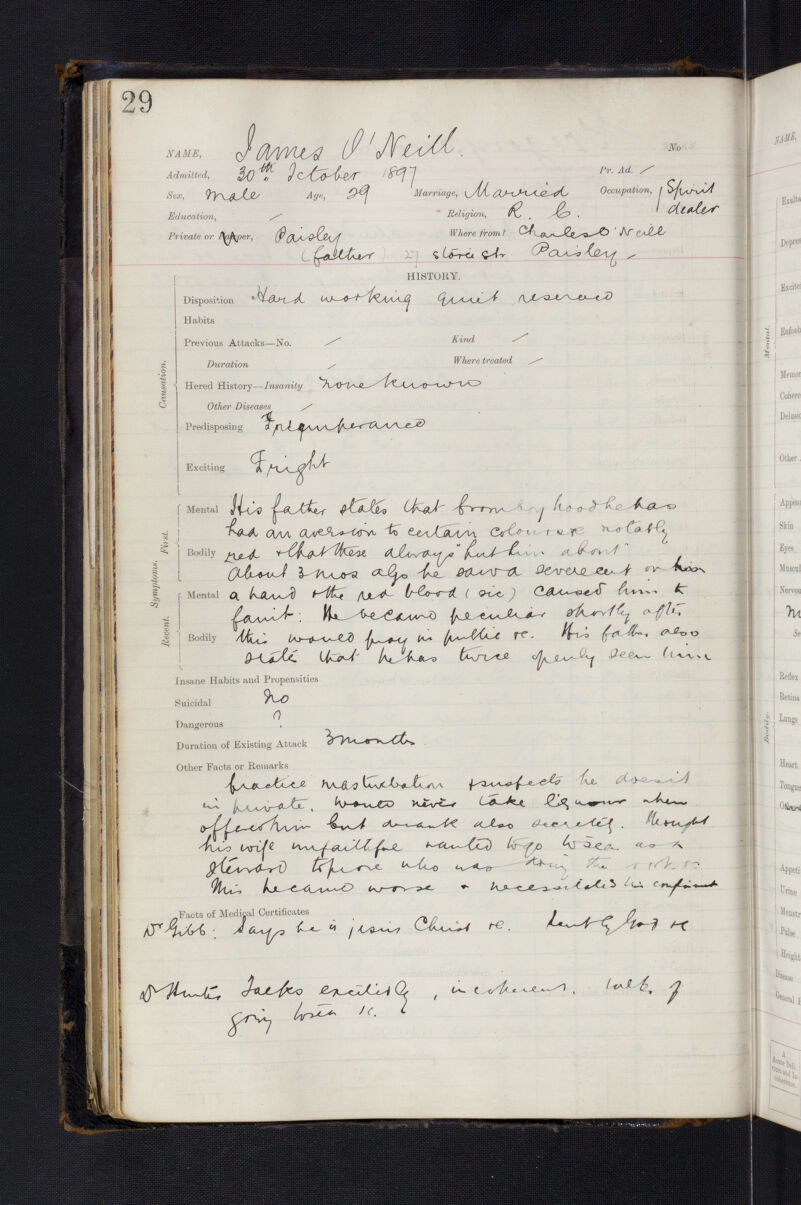 29
NAME, James O'Neill. No
Admitted, 30th October 1897 Pr. Ad. /
Sex, Male Age, 29 Marriage, Married Occupation, Spirit dealer
Education, / Religion, R. C.
Private or Pauper, Paisley Where from? Charles O'Neill
(father) 27 Storie St Paisley
HISTORY.
Causation.
Disposition Hard working quiet reserved
Habits
Previous Attacks—No. / Kind /
Duration / Where treated /
Hered History—Insanity None known
Other Diseases /
Predisposing Intemperance
Exciting Fright
Symptoms. First.
Mental His father states that from boyhood he has
had an aversion to certain colours notably
Bodily red & that these always "put him about"
About 3 mos ago he saw a severe cut on
Recent.
Mental a hand & the red blood (sic) caused him to
faint: He became peculiar shortly after
Bodily this would pray in public &c. His father also
states that he has twice openly seen him
Insane Habits and Propensities
Suicidal No
Dangerous ?
Duration of Existing Attack 3 months
Other Facts or Remarks
practice masturbation & suspects he does it
in private. Would never take liquour when
offered him but drank also secretely. Thought
his wife unfaithful wanted to go to sea as a
steward to prove who was doing the
This became worse & necessitated his confinement
Facts of Medical Certificates
Dr Gibb: Says he is jesus Christ &c. Sent by God &c
Dr Hunter Talks excitedly, incoherent. talks of
going to sea &c.
NAME,
Mental.
Bodily.
Reflex
Retina
Lungs
Heart
Urine
Pulse
Height
Disease
Skin
Eyes